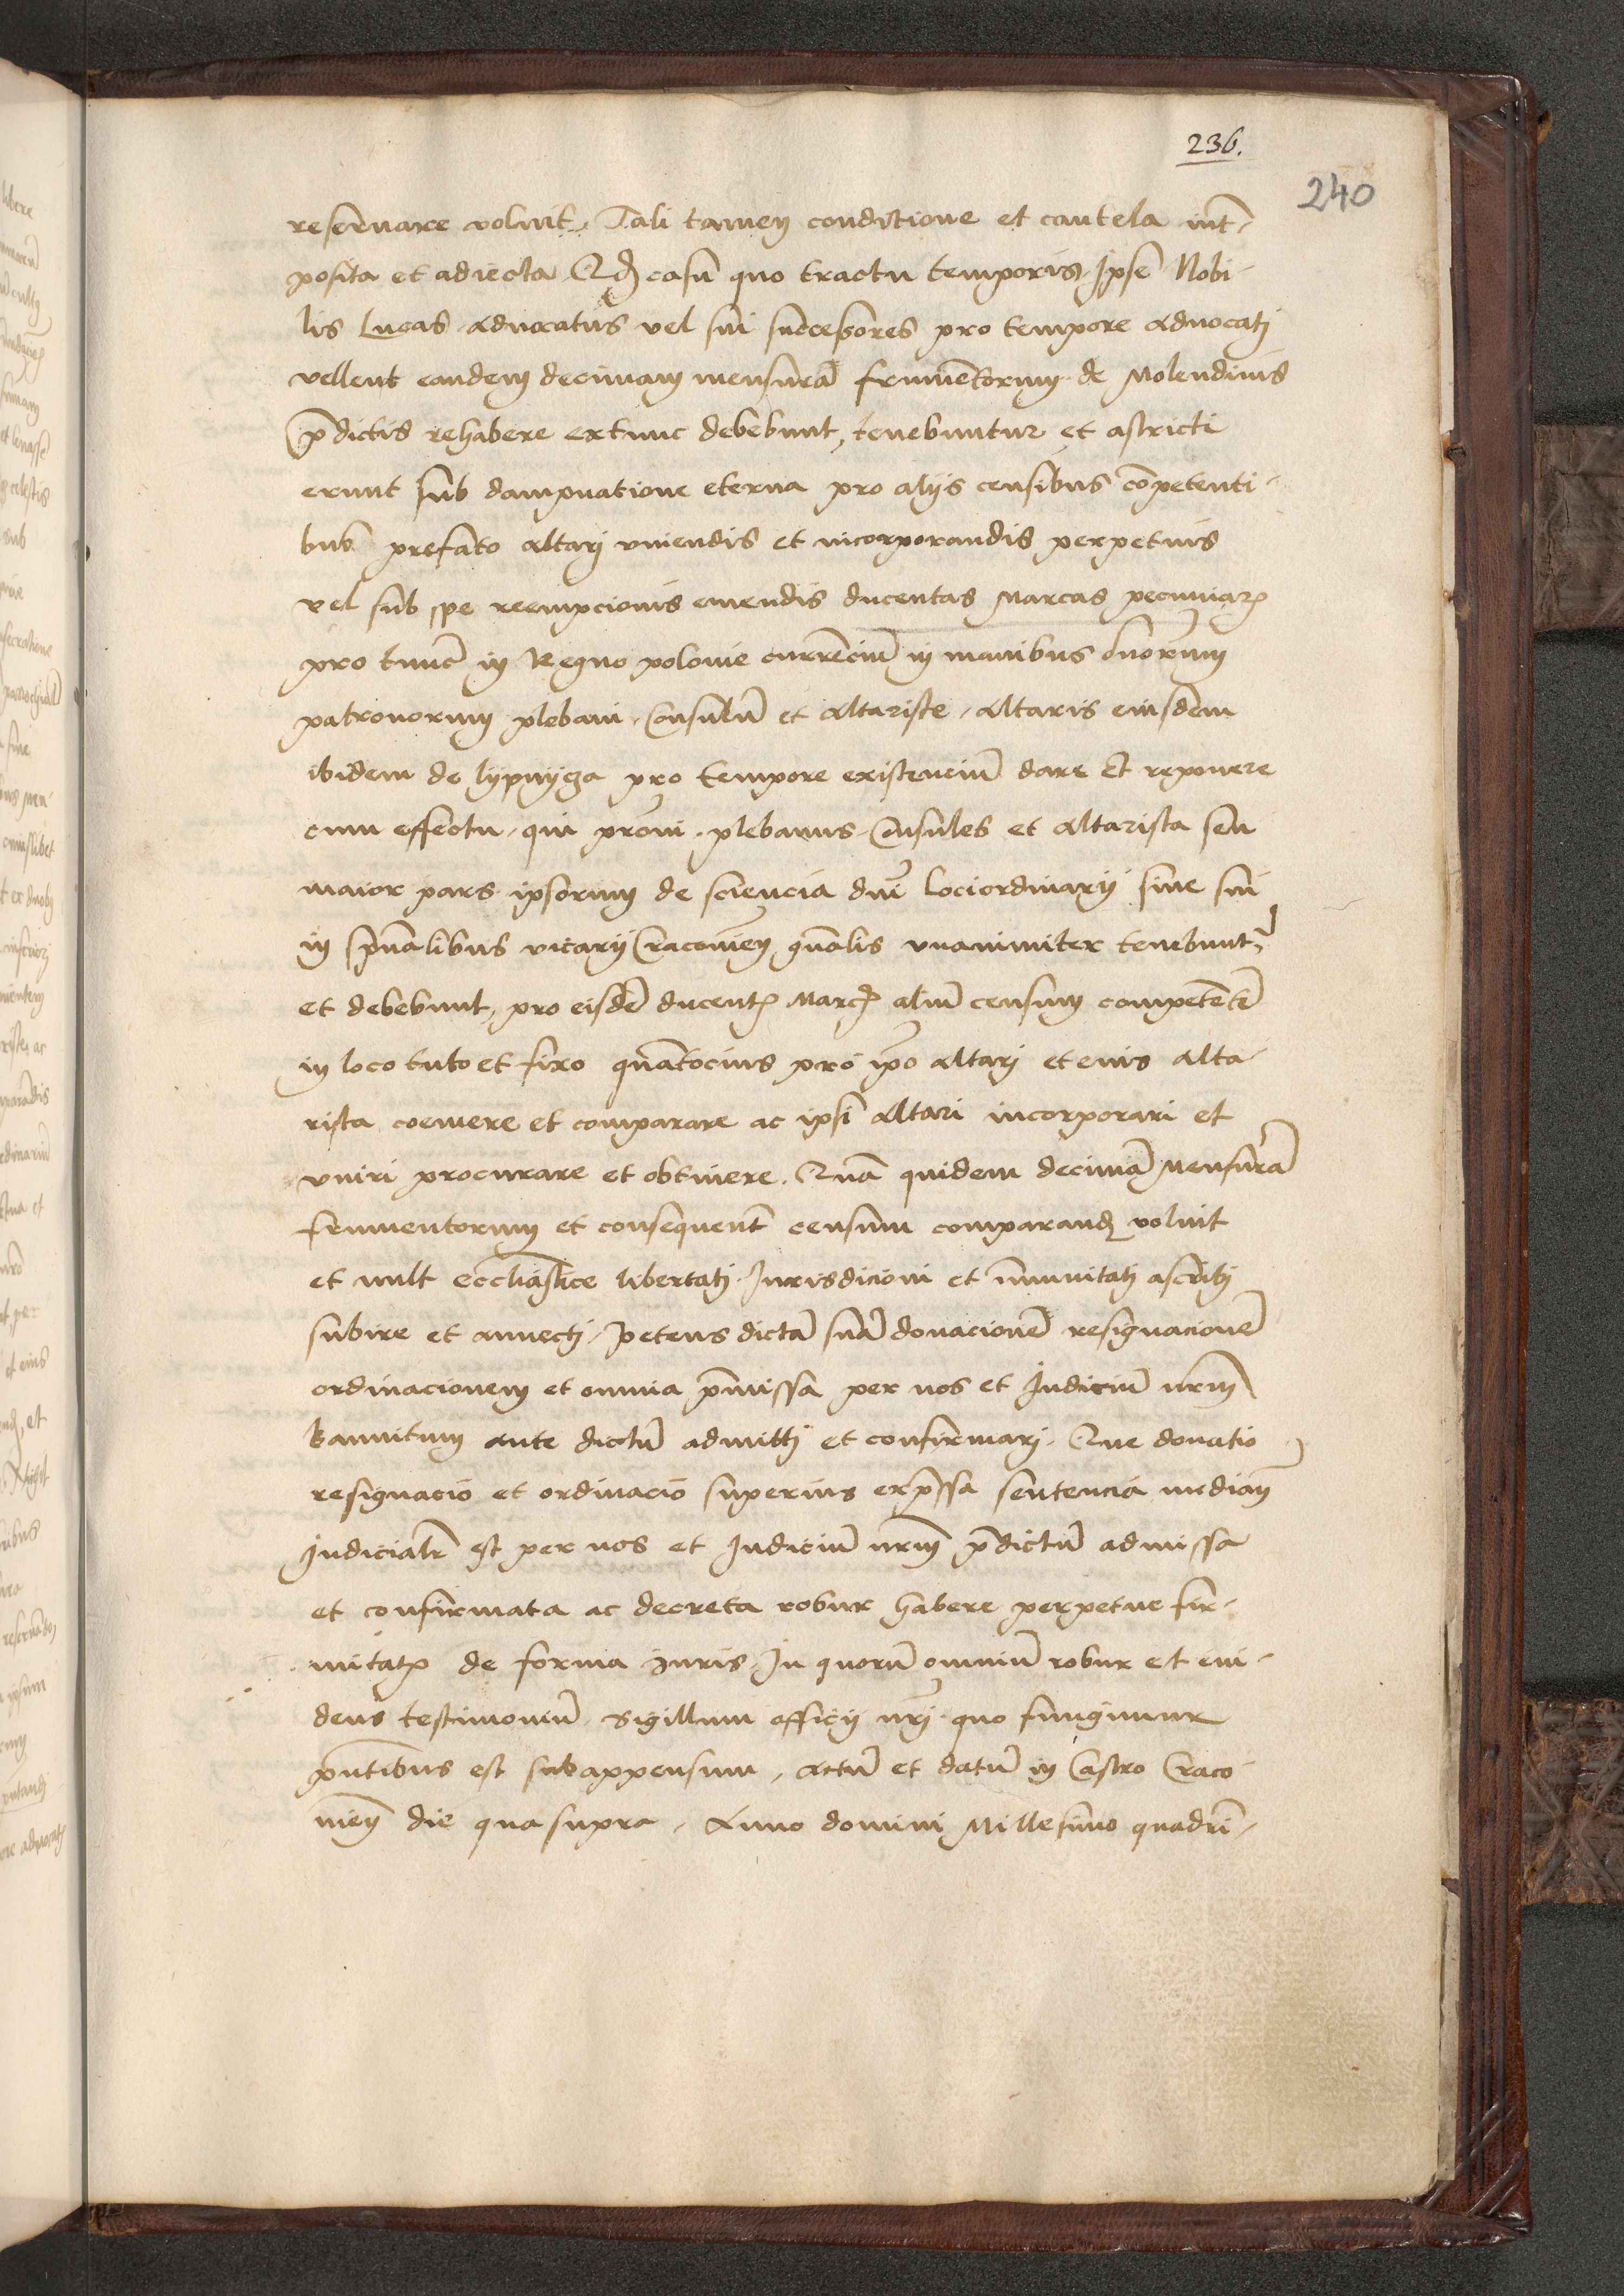 236.
240
reservare voluit. Tali tamen conditione et cautela int-
posita et adiecta Qđ casu quo tractu temporis Ipse Nobi-
lis Lucas advocatus vel sui successores pro tempore advocati
vellent eandem decimam mensurā frumentorum de Molendinis
p̄dictis rehabere extunc debebunt, tenebuntur et astricti
erunt sub dampnatione eterna pro alijs censibus cōpetenti-
bus prefato altari vniendis et incorporandis perpetuis
vel sub spe reempcionis emendis ducentas Marcas pecuniarꝫ
pro tunc in Regno polonie currēciū in manibus dnorum
patronorum plebani, Consulū et altariste, altaris eiusdem
ibidem de lypnyga pro tempore existenciū dare et reponere
cum effectu, qui prōni, plebanus, Consules et altarista seu
maior pars ipsorum de sciencia dnī Lociordinarij sive sui
in spūalibus vicarij Cracovien gn̄alis vnanimiter tenebunt̄
et debebunt, pro eisdē ducentꝫ Marcꝫ aliū censum competētē
in loco tuto et fixo quātocius pro ip̄o altari et eius alta-
rista coemere et comparare ac ipsi altari incorporari et
vniri procurare et obtinere. Quā quidem decimā Mensurā
frumentorum et consequent̄ censum comparanđ voluit
et vult eccl̄iastice libertati Iurisdicioni et īmunitati ascribi
subire et annecti, petens dictā suā donacionē resignacionē
ordinacionem et omnia p̄missa per nos et Iudiciū nr̄m
bannitum ante dictū admitti et confirmari. Que donatio
resignacio et ordinacio superius exp̄ssa sentencia median̄
Iudicialr̄ est per nos et Iudiciū nr̄m p̄dictū admissa
et confirmata ac decreta robur habere perpetue fir-
mitatꝫ de forma Iuris. In quorū omniū robur et evi-
dens testimoniū Sigillum officij nr̄j quo fungimur
p̄ntibus est subappensum, actū et datū in Castro Craco-
vien̄ die qua supra, Anno domini Millesimo quadrī-